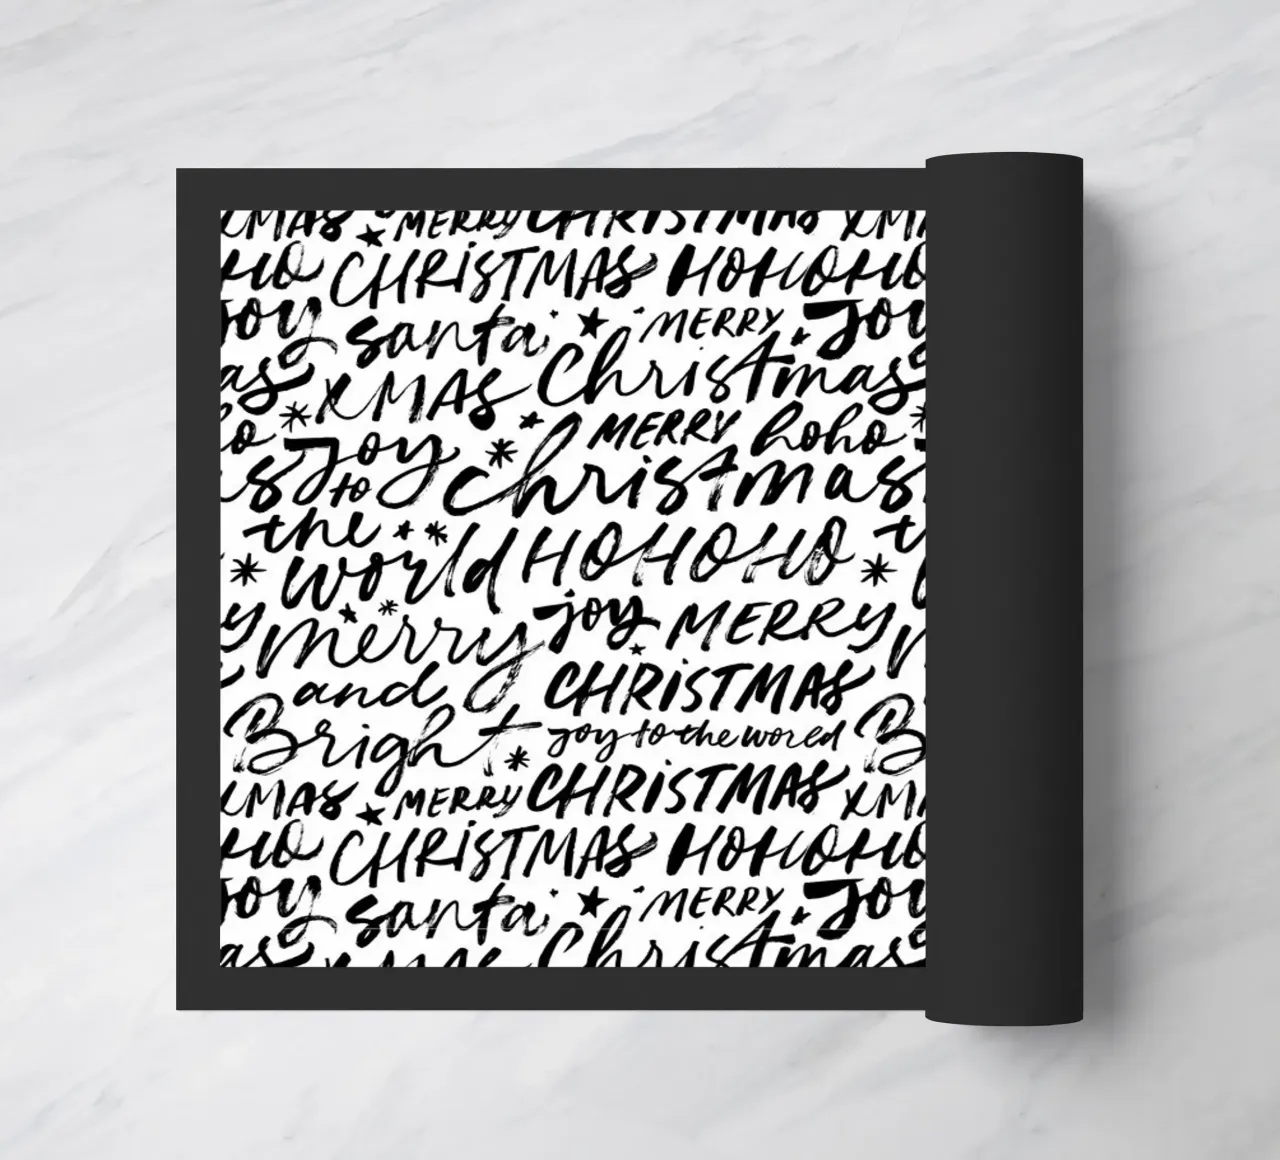 XMAS MERRY CHRISTMAS XM
HO CHRISTMAS HOHOHO
Joy santa MERRY Joy
as XMAS Christmas
o MERRY hoho
s Joy to christmas
the world HOHOHO t
y merry joy MERRY
and CHRISTMAS
Bright joy to the world B
XMAS MERRY CHRISTMAS XM
HO CHRISTMAS HOHOHO
Joy santa MERRY Joy
as XMAS Christmas